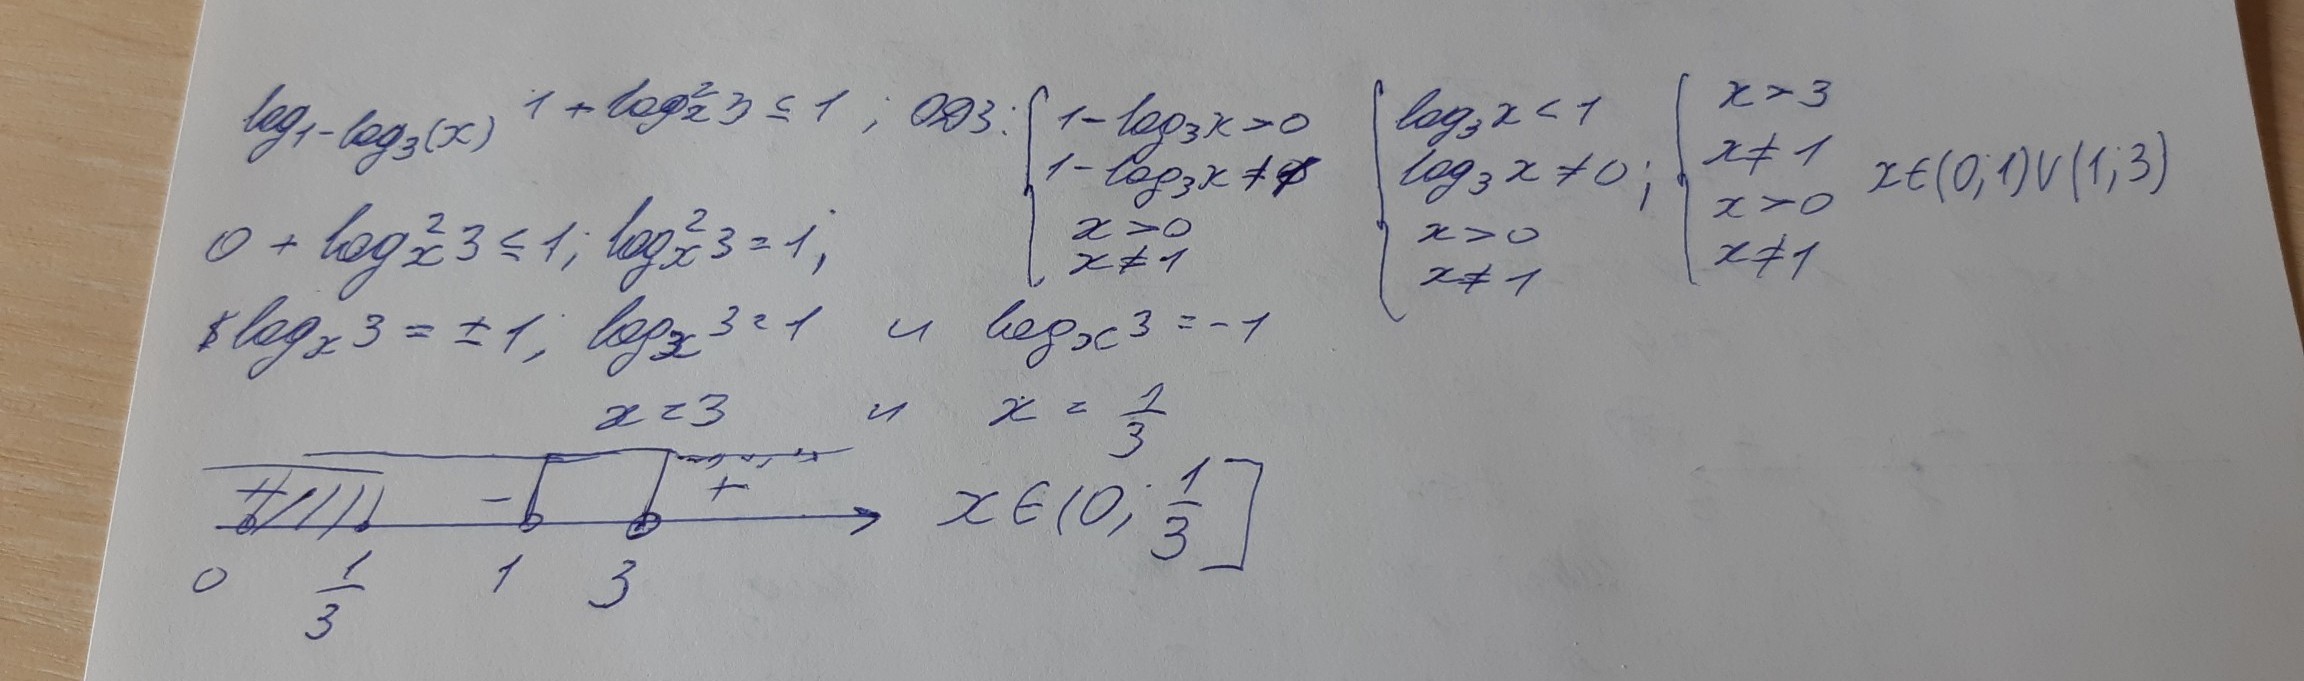 log_{1-log_3(x)} 1 + log²_x 3 ≤ 1 ; ОДЗ: { 1-log_3 x > 0 { log_3 x < 1 { x > 3
1-log_3 x ≠ 1 log_3 x ≠ 0 ; x ≠ 1 x ∈ (0; 1) ∪ (1; 3)
x > 0 x > 0 x > 0
x ≠ 1 x ≠ 1 x ≠ 1
0 + log²_x 3 ≤ 1; log²_x 3 = 1;
log_x 3 = ± 1; log_x 3 = 1 и log_x 3 = -1
x = 3 и x = 1/3
- + x ∈ (0; 1/3]
0 1/3 1 3